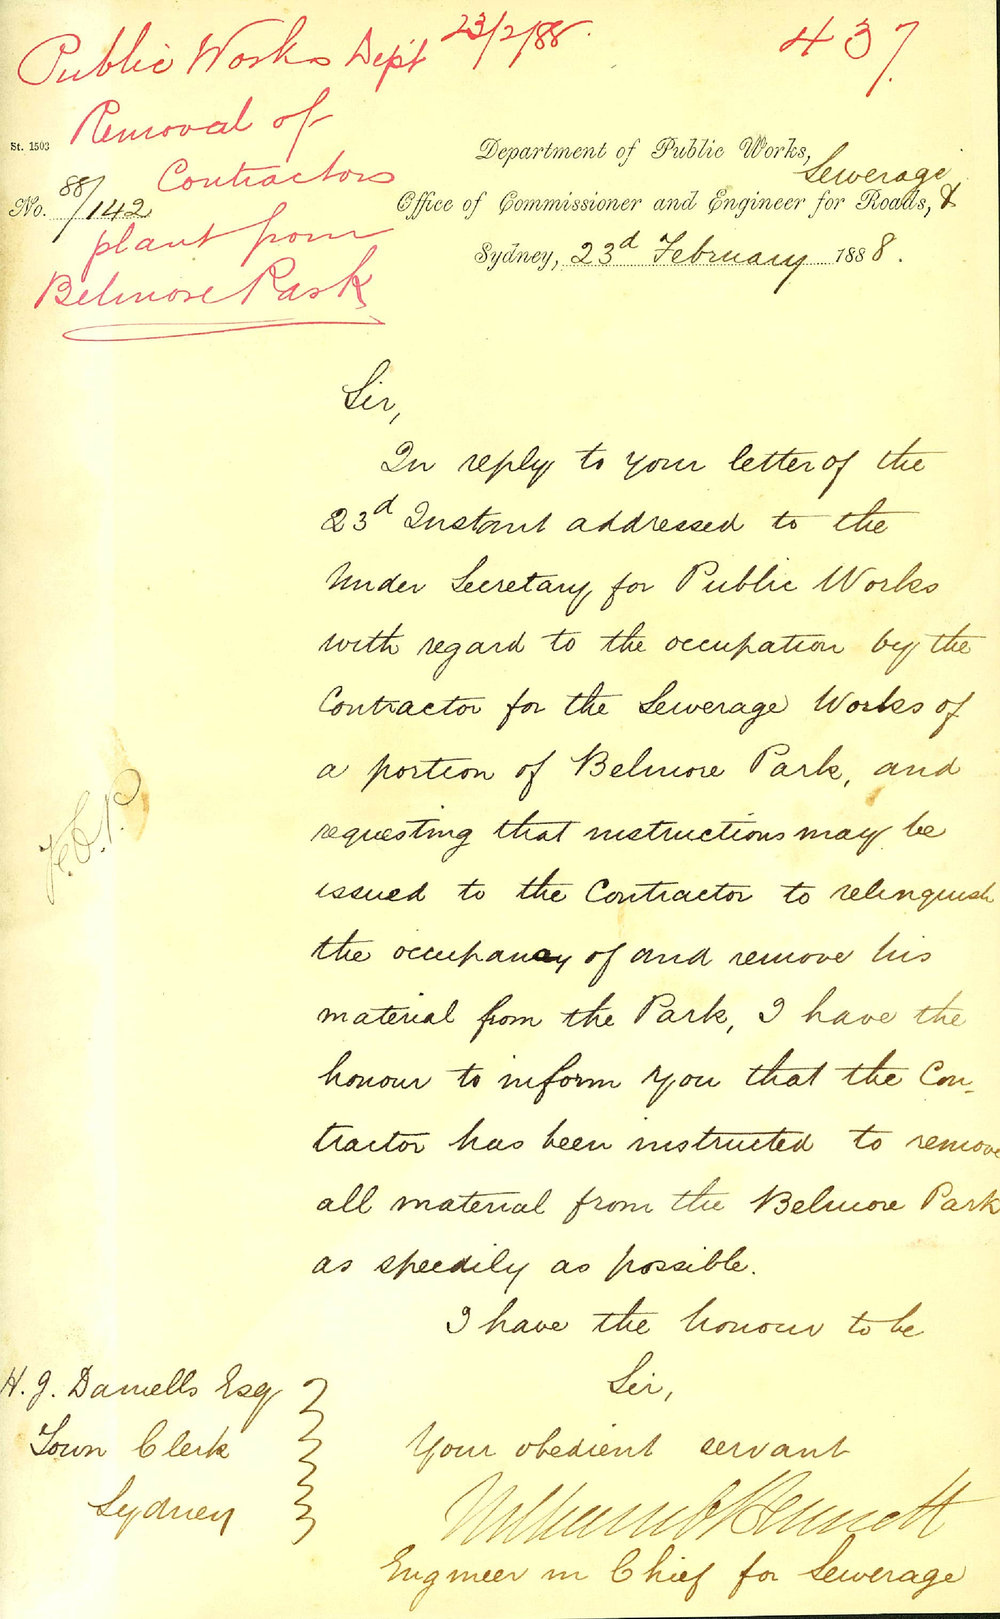 Public Works Dept 23/2/88.
437.
Removal of
Contractors
plant from
Belmore Park
St. 1503
No. 88/142
Department of Public Works,
Sewerage
Office of Commissioner and Engineer for Roads, &
Sydney, 23d February 1888.
Sir,
In reply to your letter of the
23d Instant addressed to the
Under Secretary for Public Works
with regard to the occupation by the
Contractor for the Sewerage Works of
a portion of Belmore Park, and
requesting that instructions may be
issued to the Contractor to relinquish
the occupancy of and remove his
material from the Park, I have the
honour to inform you that the Con-
tractor has been instructed to remove
all material from the Belmore Park
as speedily as possible.
I have the honour to be
Sir,
Your obedient servant
William C Bennett
Engineer in Chief for Sewerage
H. J. Daniells Esq
Town Clerk
Sydney